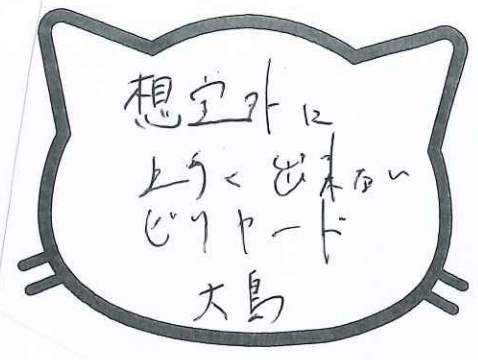 想定外に
上うく出来ない
ビリヤード
大島